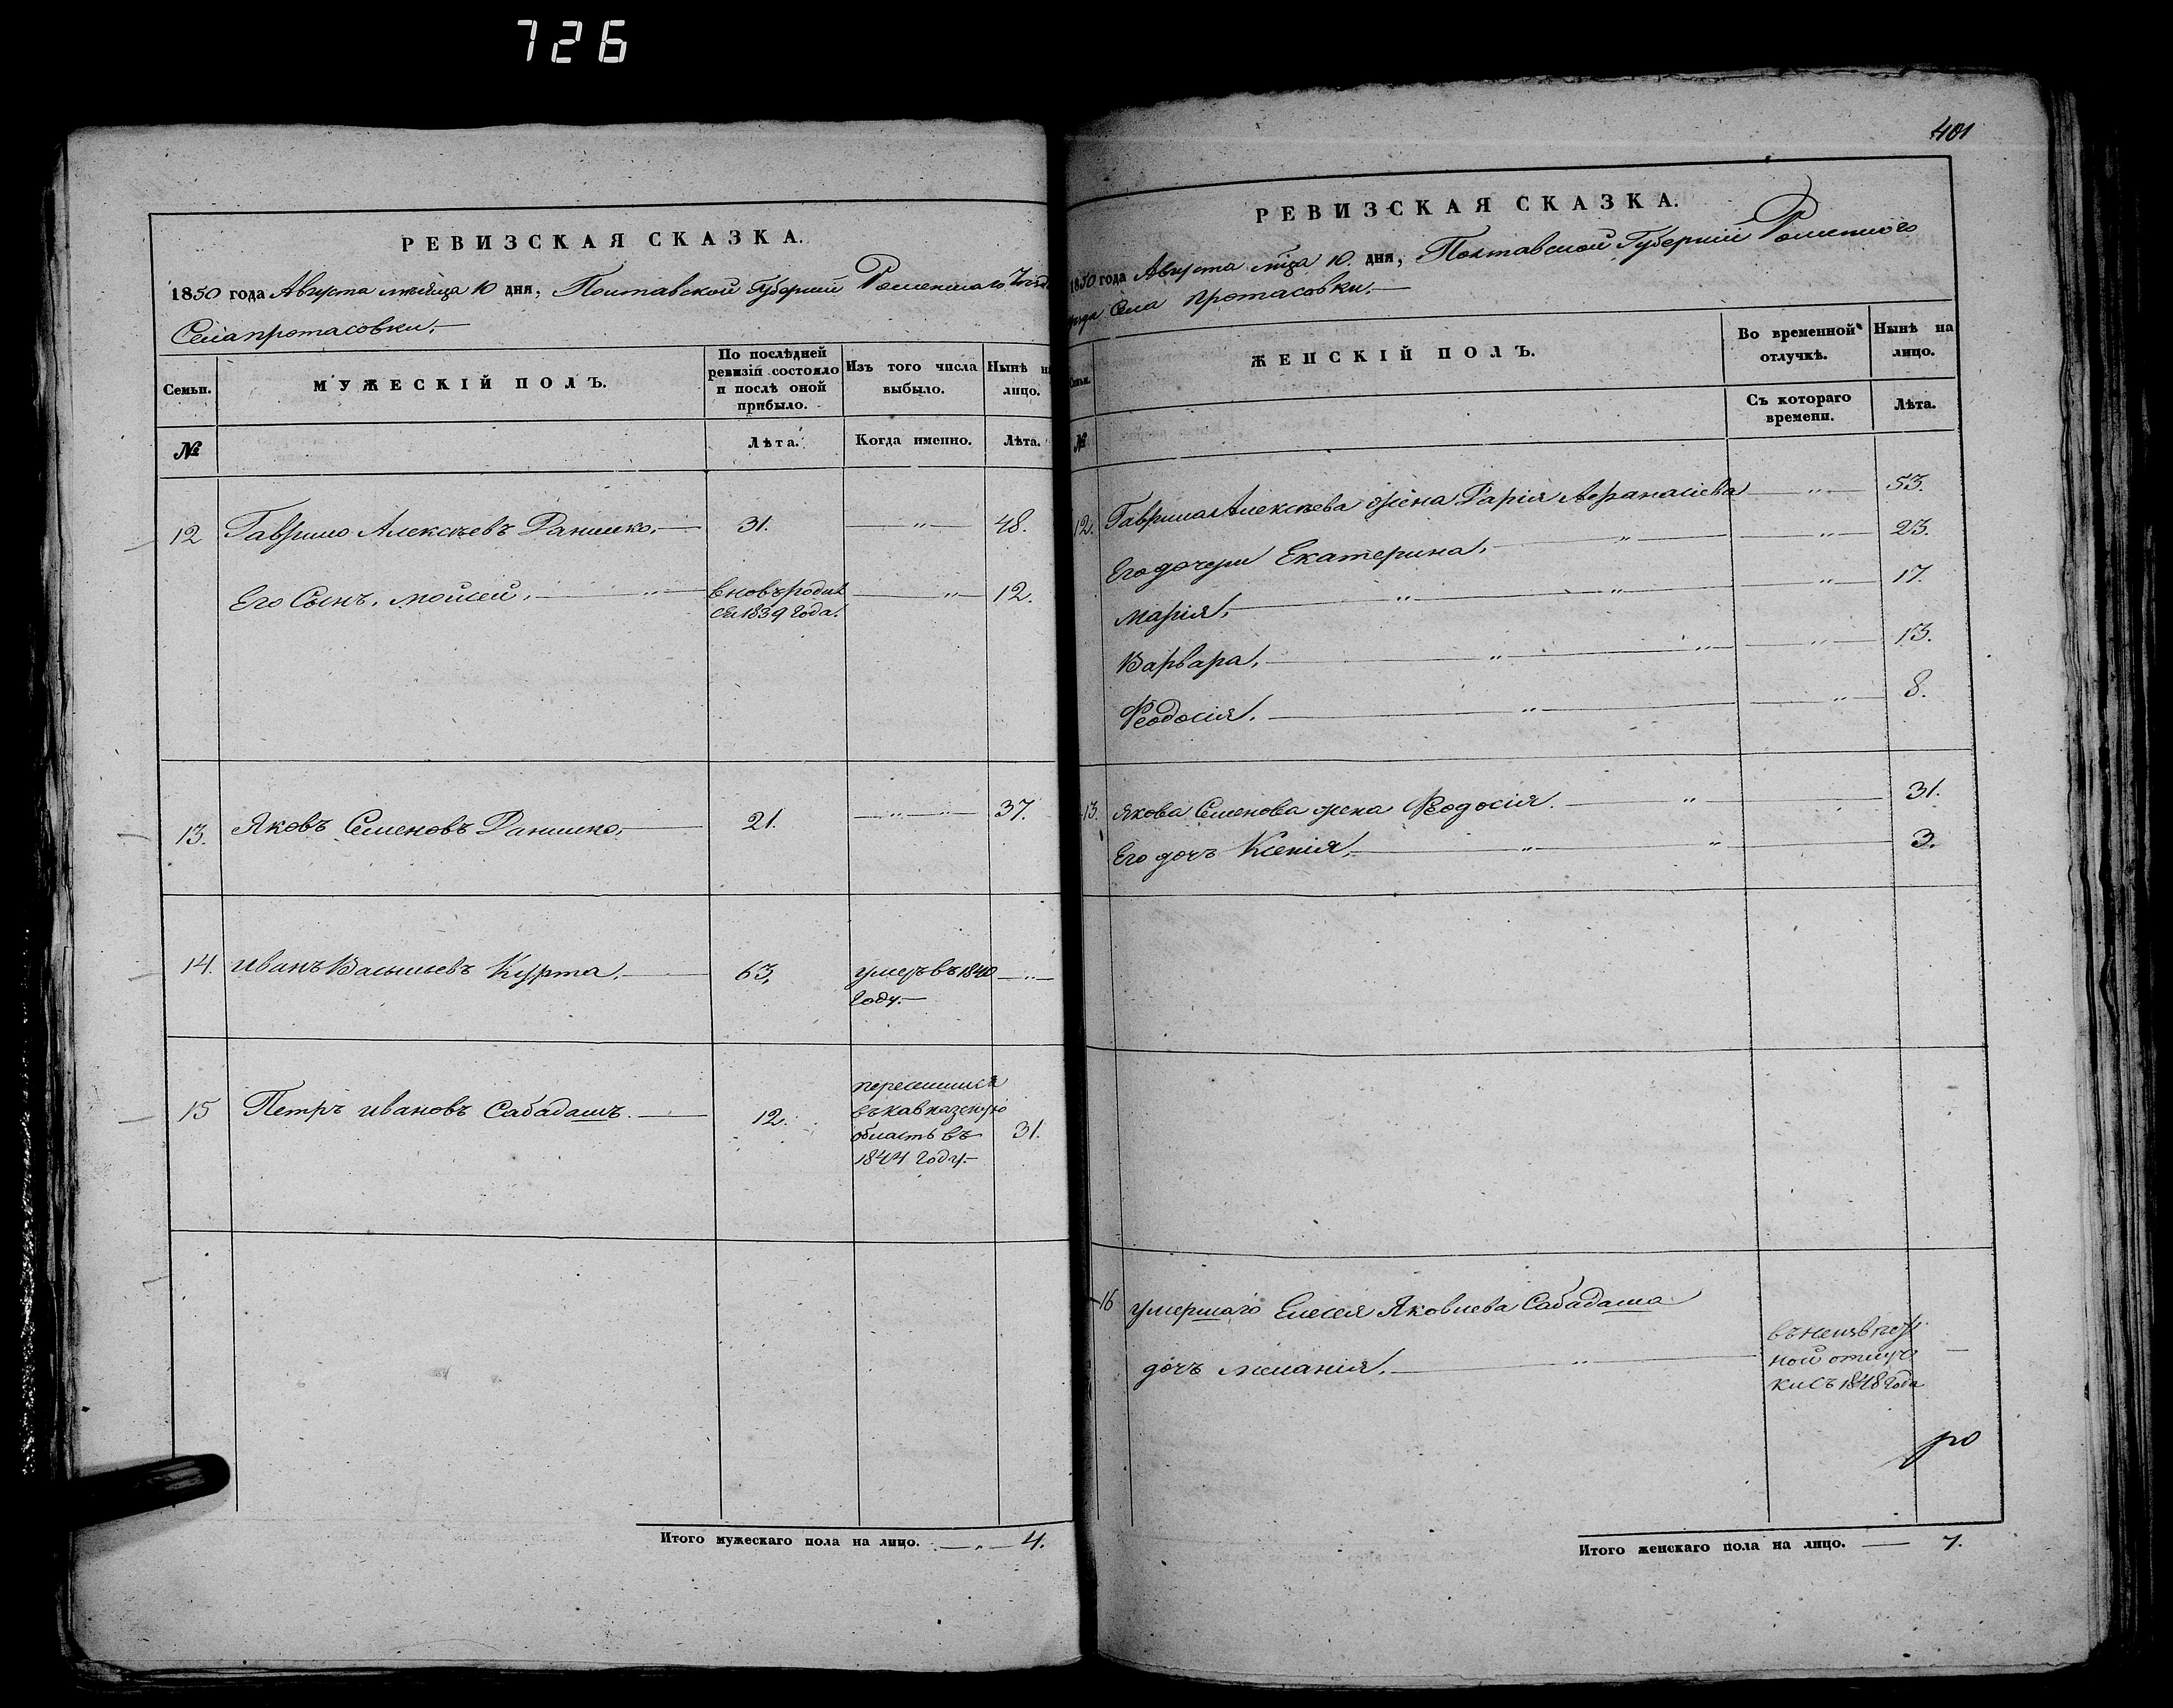 726
РЕВИЗСКАЯ СКАЗКА.
1850 года Августа мѣсяца 10 дня, Полтавской Губерніи Роменскаго Уѣзда
Села протасовки.
Семьи.
МУЖЕСКІЙ ПОЛЪ.
По послѣдней ревизіи состояло и послѣ оной прибыло.
Изъ того числа выбыло.
Нынѣ на лицо.
№
Лѣта.
Когда именно.
Лѣта.
12 Гаврило Алексѣевъ 31. 48.
Его Сынъ, моисей, вновь родил
ся 1839 года. 12.
13. Яковъ Семеновъ 21. 37.
14. иванъ Васильевъ Курта, 63, умеръ въ 1840
году.
15 Петръ ивановъ Сабадашъ. 12. переселился
въ кавказскую
область въ 31.
1844 году.
Итого мужескаго пола на лицо. 4.
401
РЕВИЗСКАЯ СКАЗКА.
1850 года Августа мца 10. дня, Полтавской Губерніи Роменскаго
уѣзда Села протасовки.
Семьи.
ЖЕНСКІЙ ПОЛЪ.
Во временной отлучкѣ.
Нынѣ на лицо.
№
Съ котораго времени.
Лѣта.
12. Гаврила Алексѣева жена Дарія Афанасіева 53.
Его дочери Екатерина, 23.
марія, 17.
Варвара, 13.
Феодосія, 8.
13. Якова Семенова жена Феодосія. 31.
Его дочь Ксенія, 3.
16 умершаго Елесея Яковлева Сабадаша
дочь меланія,
въ неизвѣст
ной отлуч
ки съ 1848 года
Итого женскаго пола на лицо. 7.